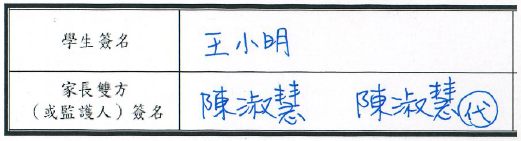 學生簽名 王小明
家長雙方
（或監護人）簽名 陳淑慧 陳淑慧 代